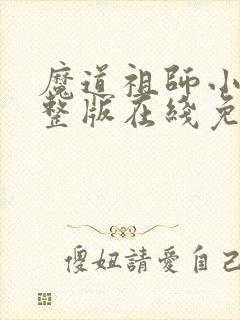 魔道祖師小
整版在綫免
傻妞請愛自己